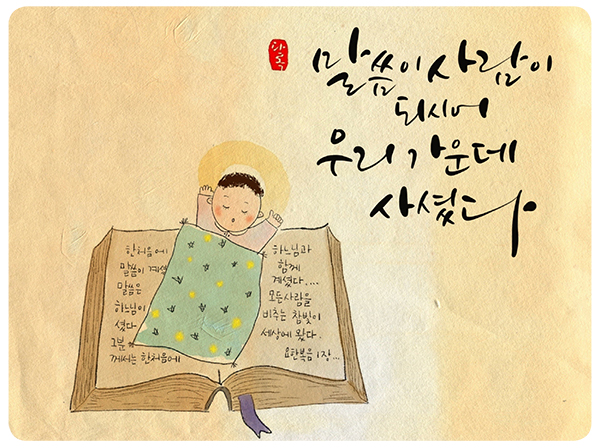 말씀이 사람이
되시어
우리 가운데
사셨다.
한처음에
말씀이 계셨
말씀은
하느님이
셨다
그분
께서는 한처음에
하느님과
함께
계셨다....
모든사람을
비추는 참빛이
세상에 왔다.
요한복음 1장...